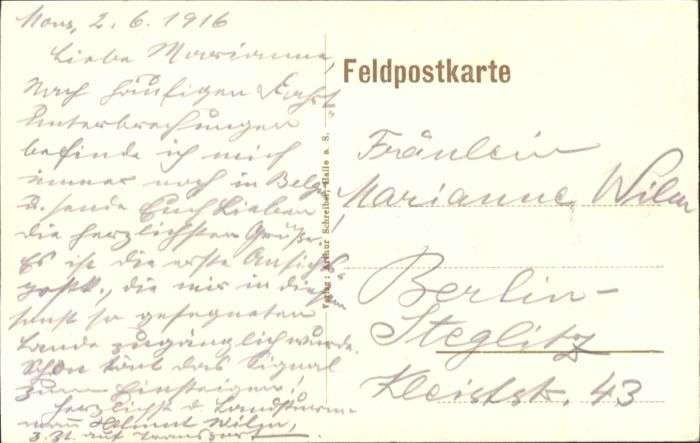 Mons, 2. 6. 1916
Liebe Marianne,
Nach häufigen Fahrt-
unterbrechungen
befinde ich mich
immer noch in Belg.
u. sende Euch Lieben
die herzlichsten Grüße!
Es ist die erste Ansichts-
postk., die mir in diesem
sonst so gesegneten
Lande zugänglich wurde.
Schon tönt das Signal
zum Einsteigen!
Herzlichst d. Landsturm-
mann Helmut Wilm,
z. Zt. auf Transport.
Verlag: Arthur Schreiber, Halle a. S.
Feldpostkarte
Fräulein
Marianne Wilm
Berlin-
Steglitz
Kleiststr. 43